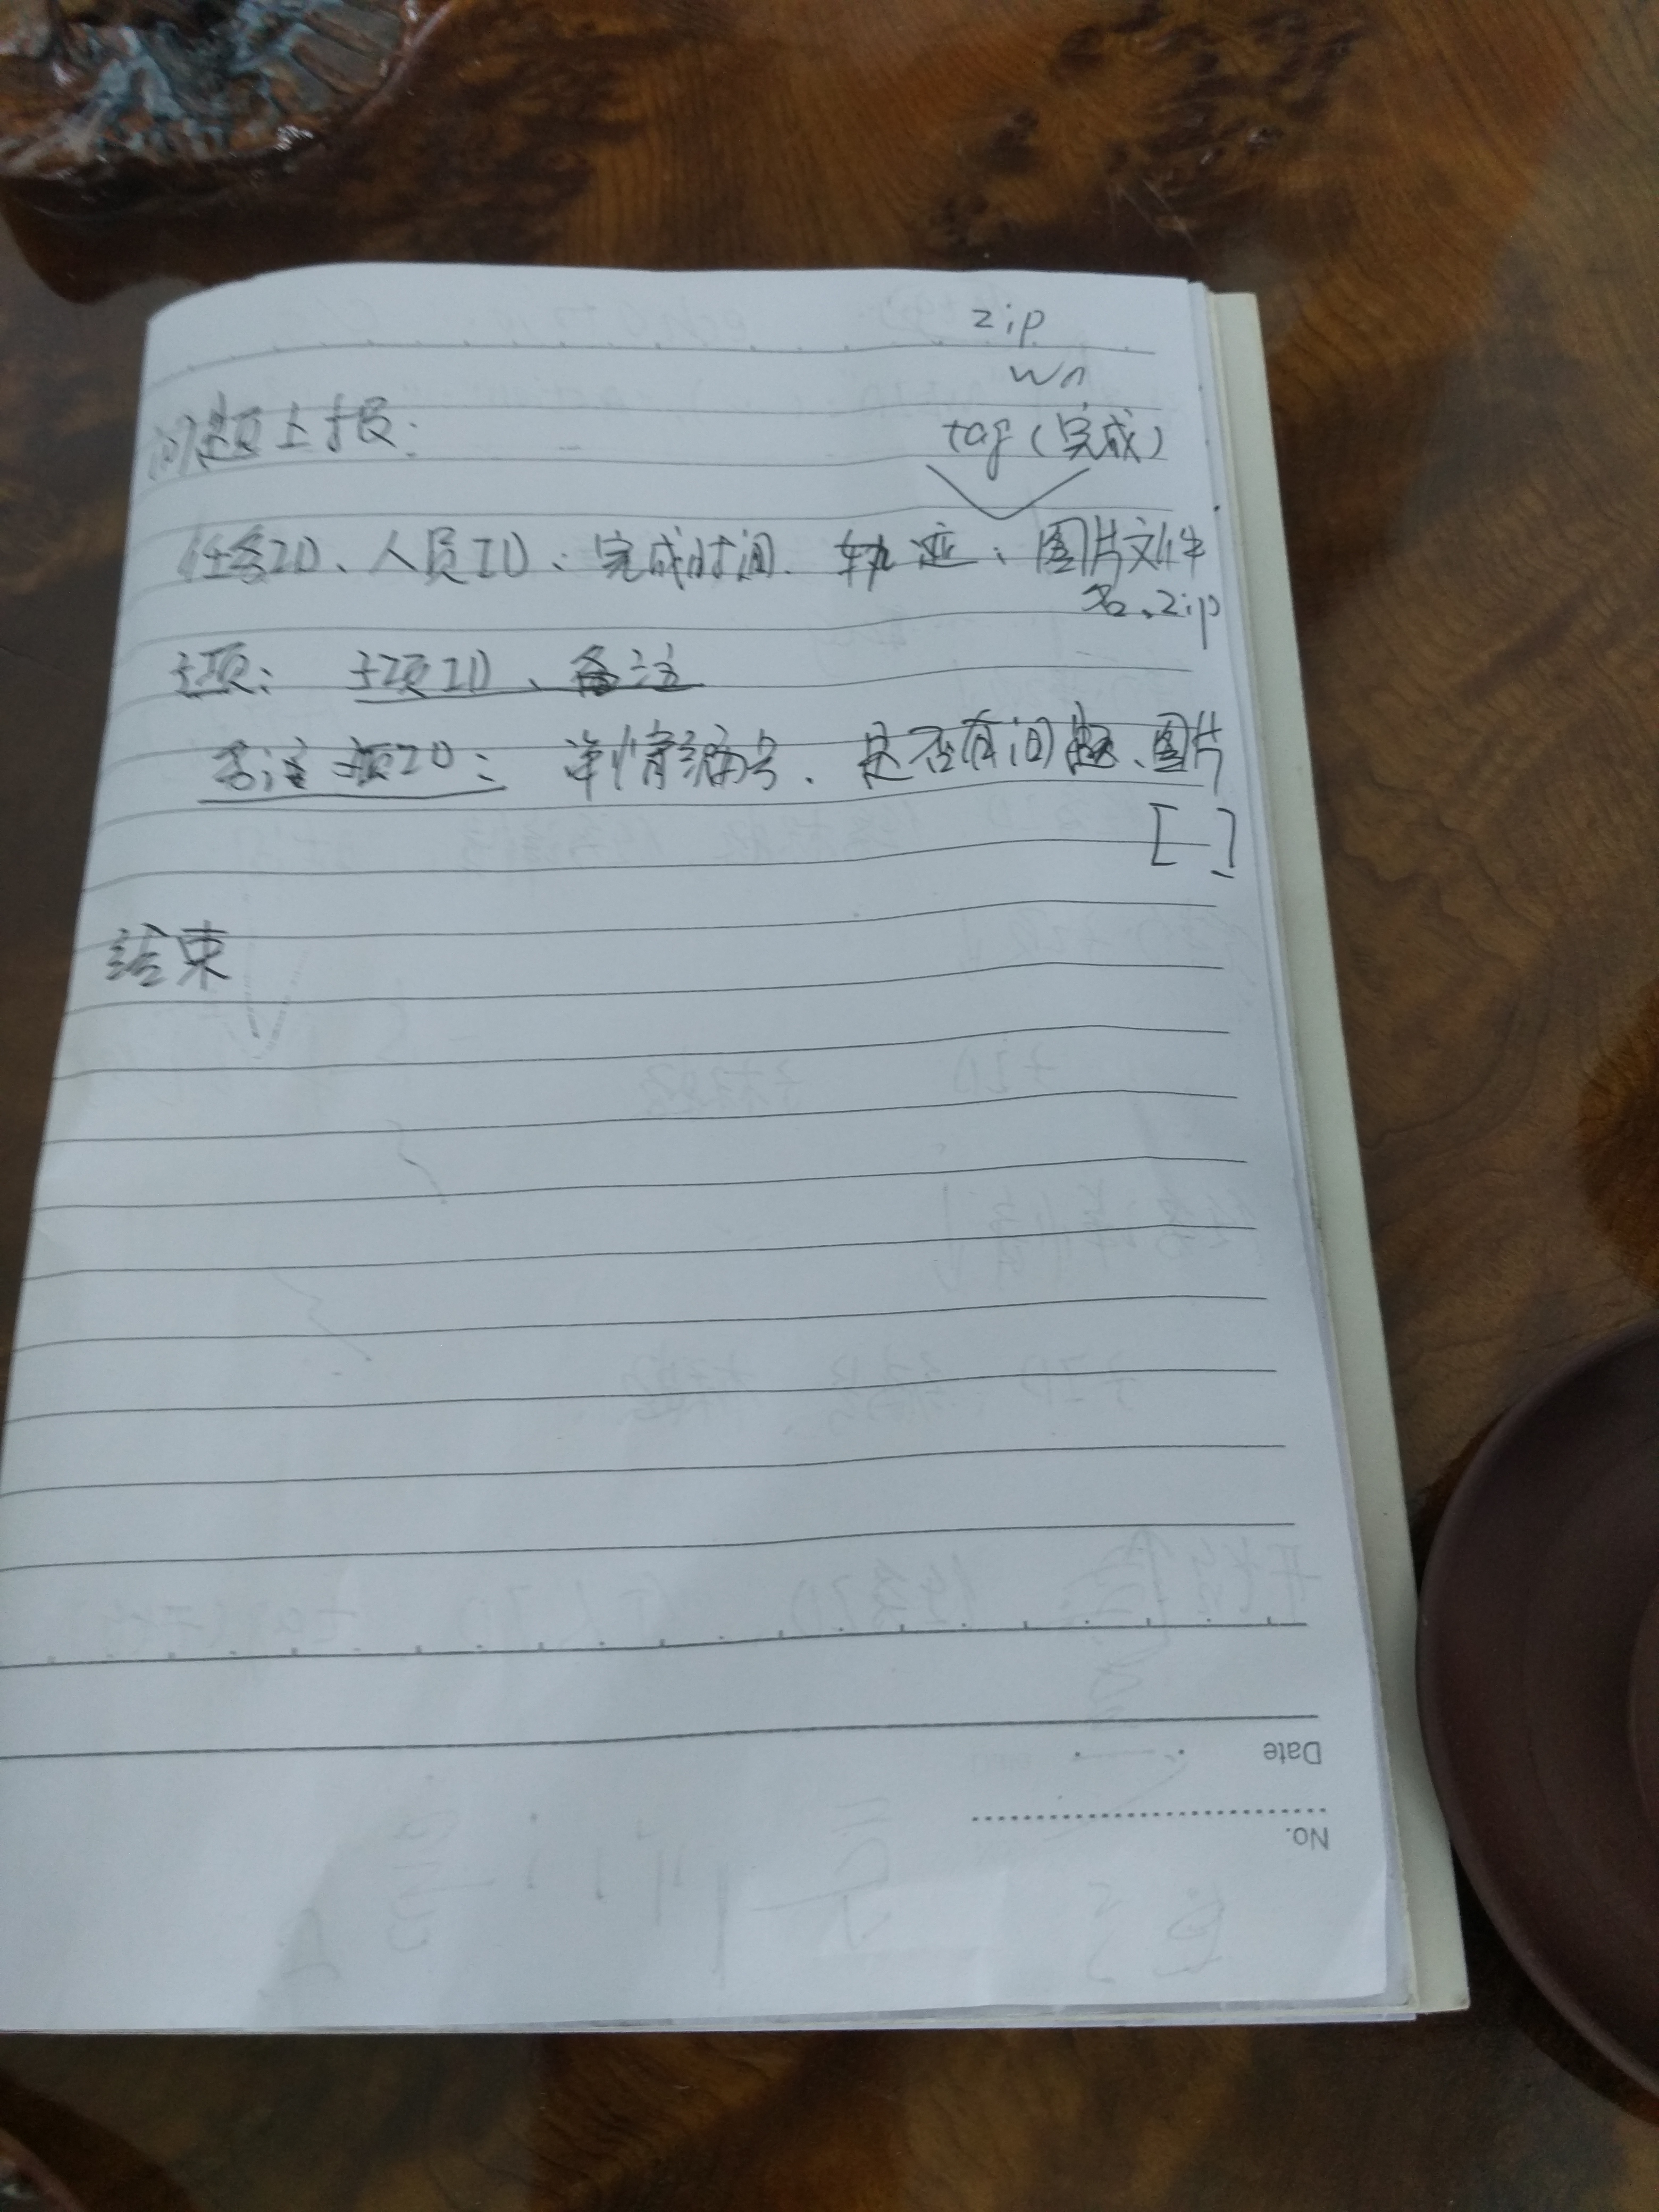 zip
问题上报:
tag(完成)
任务ID、人员ID、完成时间、轨迹、图片文件
名.zip
子项: 子项ID、备注
子项ID: 详情编号、是否有问题、图片
[ ]
结束
Date
No.